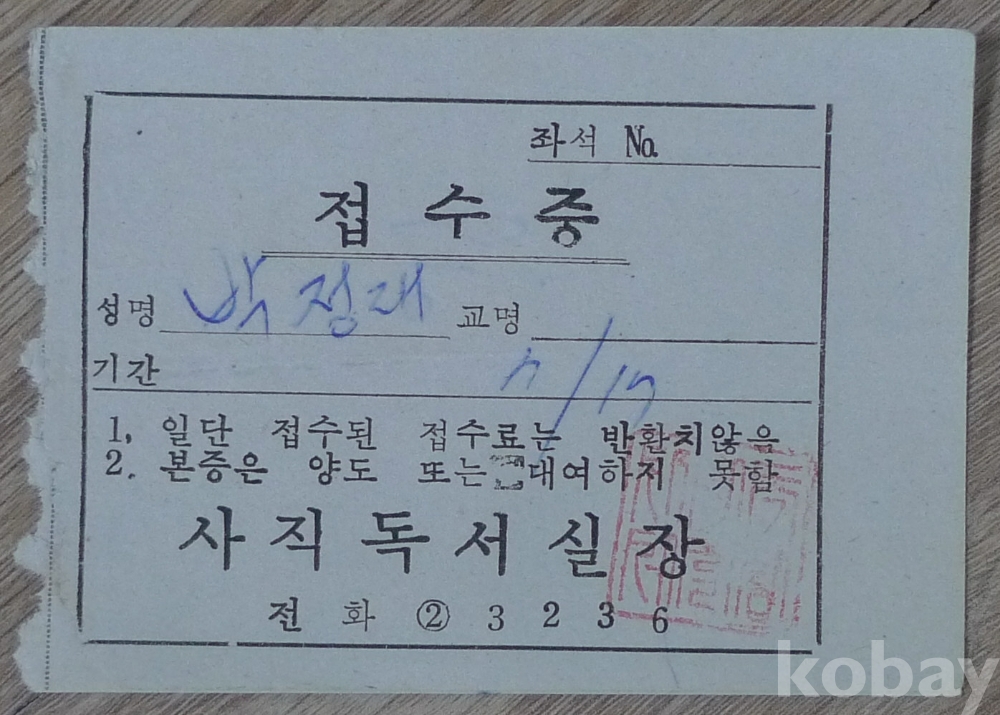 좌석 No.
접수증
성명 박정재 교명
기간 7/17
1, 일단 접수된 접수료는 반환치않음
2. 본증은 양도 또는 대여하지 못함
사직독서실장
전화 ② 3236
kobay